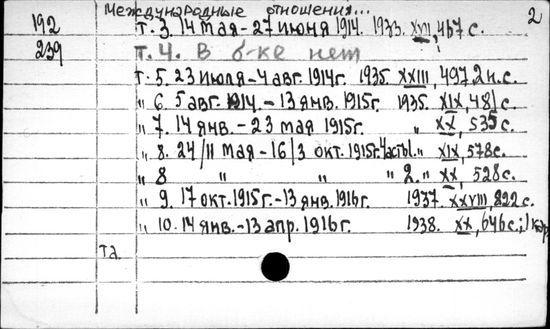 Международные отношения... 2
192 т. 3. 14 мая - 27 июня 1914. 1933. XVI, 467 с.
239 т. 4. В б-ке нет
т. 5. 23 июля - 4 авг. 1914г. 1935. XXIII, 497, 2 н. с.
" 6. 5 авг. 1914. - 13 янв. 1915г. 1935. XIX, 481 с.
" 7. 14 янв. - 23 мая 1915г. " XX, 535 с.
" 8. 24/11 мая - 16/3 окт. 1915г. Часть 1. " XIX, 578 с.
" 8 " " " 2. " XX, 528 с.
" 9. 17 окт. 1915г. - 13 янв. 1916г. 1937. XXVIII, 822 с.
" 10. 14 янв. - 13 апр. 1916г. 1938. XX, 646 с.; 1 кар
та.